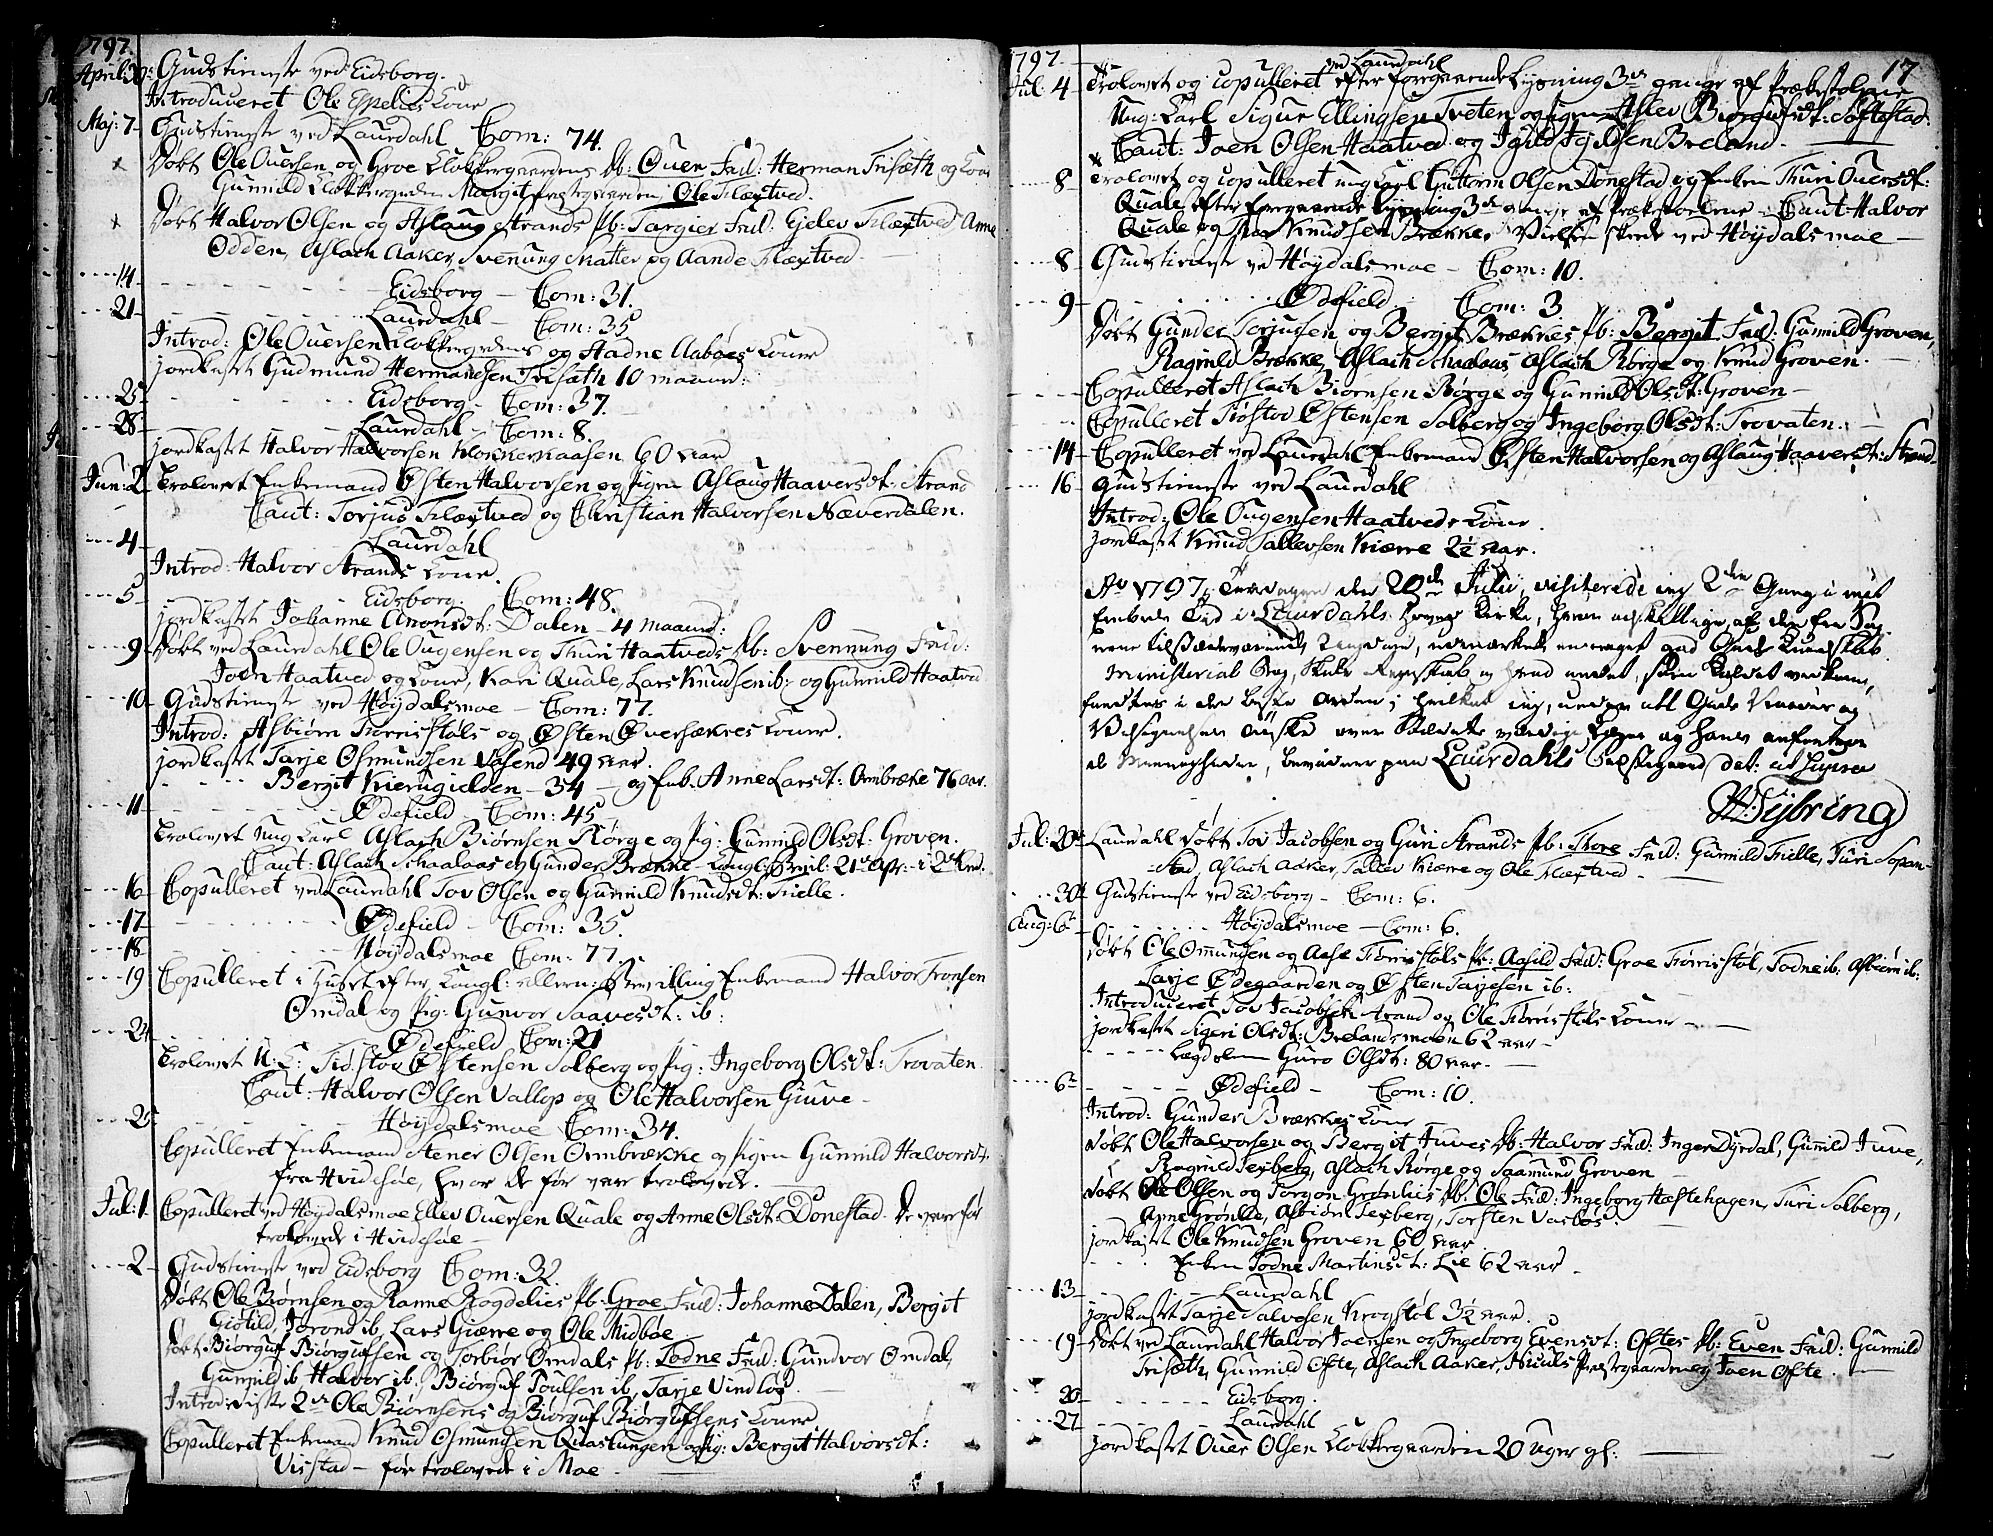 1797.
April: 30: Gudstieneste ved Eidsborg.
Introduceret Ole Espelies Kone
Maj: 7 Gudstieneste ved Laurdahl Com: 74.
Døbt Ole Ouersen og Groe Klokkergaardens Pb: Ouen Fad: Herman Trisæth og Kone
Gunnild Klokkergrden Margit Præstegaarden, Ole Flextved.
Døbt Halvor Olsen og Aslaug Strands Pb: Targier Fad: Ejelev Flextved Anne
Odden, Aslach Aaker, Svenung Skatter og Aande Flextved.
14 Eidsborg – Com: 31.
21 Laurdahl – Com: 35
Introd: Ole Ouersen Klokkergrdens og Aadne Aabøes Koner
jordkastet Gudmund Hermandsen Trisæth 10 maaned:
25 Eidsborg – Com: 37.
28 Laurdahl – Com: 8.
jordkastet Halvor Halvorsen Klokkernaasen 60 aar
Jun: 2 Trolovet Enkemand Østen Halvorsen og Pigen Aslaug Haaversdt: Strand
Caut: Torjus Flextved og Christian Halvorsen Næverdalen.
4 Laurdahl
Introd: Halvor Strands Kone.
5 Eidsborg. Com: 48.
jordkastet Johanne Anonsdt: Dalen – 4 maaned:
9 Døbt ved Laurdahl Ole Ougensen og Thuri Haatveds Pb: Svennung Fad:
Joen Haatved og Kone, Kari Quale, Lars Knudsen ib: og Gunnild Haatved
10 Gudstieneste ved Høydalsmoe – Com: 77.
Introd: Asbiørn Tiørristøls og Østen Øversækres Koner.
jordkastet Tarje Osmundsen Vasend 49 aar.
Bergit Kierrugielden – 34 – og Enk: Anne Larsdt: Ormbræke 76 aar.
11 Ødefield – Com: 45
Trolovet Ung Karl Aslach Biørnsen Rørge og Pig: Gunnild Olsdt: Groven.
Caut: Aslach Schaalaas og Gunder Brække – Kongl: Bevil: 21 Apr: i 2det led.
16 Copulleret ved Laurdahl Tov Olsen og Gunnild Knudsdt: Tielle.
17 Ødefield – Com: 35.
18 Høydalsmoe Com: 77.
19 Copulleret i Huset efter Kongl: allern: Bevilling Enkemand Halvor Tronsen
Omdal og Pig: Gunvor Saavesdt: ib:
24 Ødefield Com: 21
Trolovet U: K: Tiøstov Østensen Solberg og Pig: Ingeborg Olsdt: Trovaten.
Caut: Halvor Olsen Vallop og Ole Halvorsen Giuve –
25 Høydalsmoe Com: 34.
Copulleret Enkemand Stener Olsen Ormbrække og Pigen Gunnild Halvorsdt:
fra Hvidesøe, hvor de før vare trolovede.
Jul: 1 Copulleret ved Høydalsmoe Ellev Ouersen Quale og Anne Olsdt: Donestad. De vare før
trolovede i Hvidesøe –
2 Gudstieneste ved Eidsborg Com: 32.
Døbt Ole Biørnsen og Ranne Rogdelies Pb: Groe Fad: Johanne Dalen, Bergit
Giøtild, Jorond ib, Lars Giærre og Ole Midbøe
Døbt Biørguf Biørgufsen og Torbiør Omdals Pb: Todne Fad: Gundvor Omdal,
Gunnild ib Halvor ib: Biørguf Poulsen ib, Tarje Vindløs.
Introd: sidste 2de Ole Biørnsens og Biørguf Biørgufsens Koner
Copulleret Enkemand Knud Osmundsen Quastungen og Pig: Bergit Halvorsdt:
Vistad – før trolovede i Moe –
1797. 17
ved Laurdahl
Jul: 4 Trolovet og copulleret efter foregaaende Lysning 3de gange af Prækestolene
Ung: Karl Sigur Ellingsen Tveten og Pigen Aslev Biørgufsdt: Søftestad.
Caut: Joen Olsen Haatved og Igild Egilsen Breland.
8 Trolovet og copulleret ung Karl Guttorm Olsen Donestad og Enken Thuri Ouersdt:
Quale efter foregaaende Lysning 3de gange af Prækestoelene – Caut: Halvor
Quale og Knudsen Brække. Vielsen skede ved Høydalsmoe –
8 Gudstieneste ved Høydalsmoe – Com: 10.
9 Ødefield Com: 3
Døbt Gunder Torjussen og Bergit Brækkes Pb: Bergit Fad: Gunnild Groven,
Ragnild Brække, Aslach Schaalaas, Aslach Rørge og Knud Groven.
Copulleret Aslach Biørnsen Børge og Gunnild Olsdt: Groven –
Copulleret Tiøstov Østensen Solberg og Ingeborg Olsdt: Trovaten.
14 Copulleret ved Laurdahl Enkemand Østen Halvorsen og Aslaug Haaversdt: Strand
16 Gudstieneste ved Laurdahl
Introd: Ole Ougensen Haatveds Kone.
jordkastet Knud Tallevsen Kiærre 2½ aar.
Ao 1797, Torsdagen den 20de Julii, visiterede ieg 2den Gang i mit
Embeds Tid i Laurdahls Hoved Kirke, hvor adskillige af den fra
tilstædeværende Ungdom, udmærkede en meget god Guds Kundskab.
Ministerial Bog, Skole Regnskab og hvad andet,
fandtes i den beste Orden; hvilket ieg, under all Guds Naades og
Velsignelses Ønske over Stædets værdige Lærer og hans anfortroe
de Menigheder, bevidner paa Laurdahls Præstegaard dat: ut supra
H: Sejbring
Jul: 20de Laurdahl Døbt Tov Jacobsen og Guri Strands Pb: Thore Fad: Gunnild Tielle, Turi Sopan-
stad, Aslach Aaker, Tallev Kiærre og Ole Flextved –
30 Gudstieneste ved Eidsborg – Com: 6.
Aug: 6 Høydalsmoe – Com: 6.
Døbt Ole Omundsen og Aase Tiørristøls Pb: Aasild Fad: Groe Tiørristøl, Todne ib: Asbiørn ib:
Tarje Ødegaarden og Østen Tarjesen ib:
Introduceret Tov Jacobsen Strand og Ole Tiørristøls Koner –
jordkastet Sigeri Olsdt: Brelandsmoen 62 aar –
Lægdslem Guro Olsdt: 80 aar. –
6 Ødefield – Com: 10.
Introd: Gunder Brækkes Kone
Døbt Ole Halvorsen og Bergit Juves Pb: Halvor Fad: Inger Dyrdal, Gunild Juve,
Ragnild Texberg, Aslach Rørge og Saamund Groven
Døbt Ole Olsen og Torgon Grønlies Pb. Ole Fad: Ingeborg Hæftehagen, Turi Solberg,
Anne Grønlie, Asbiørn Texberg, Torsten Vasløs.
jordkastet Ole Knudsen Groven 60 aar
Enken Todne Martinsdt: Lie 62 aar –
13 Laurdahl
jordkastet Tarje Salvesen Krogstøl 3½ aar.
19 Døbt ved Laurdahl Halvor Joensen og Ingeborg Evensdt: Oftes Pb: Even Fad: Gunnild
Trisæth, Gunnild Ofte, Aslach Aaker, Niculs Præstegaarden og Joen Ofte.
20 Eidsborg.
27 Laurdahl
jordkastet Ouer Olsen Klokkergaarden 20 Uger gl: